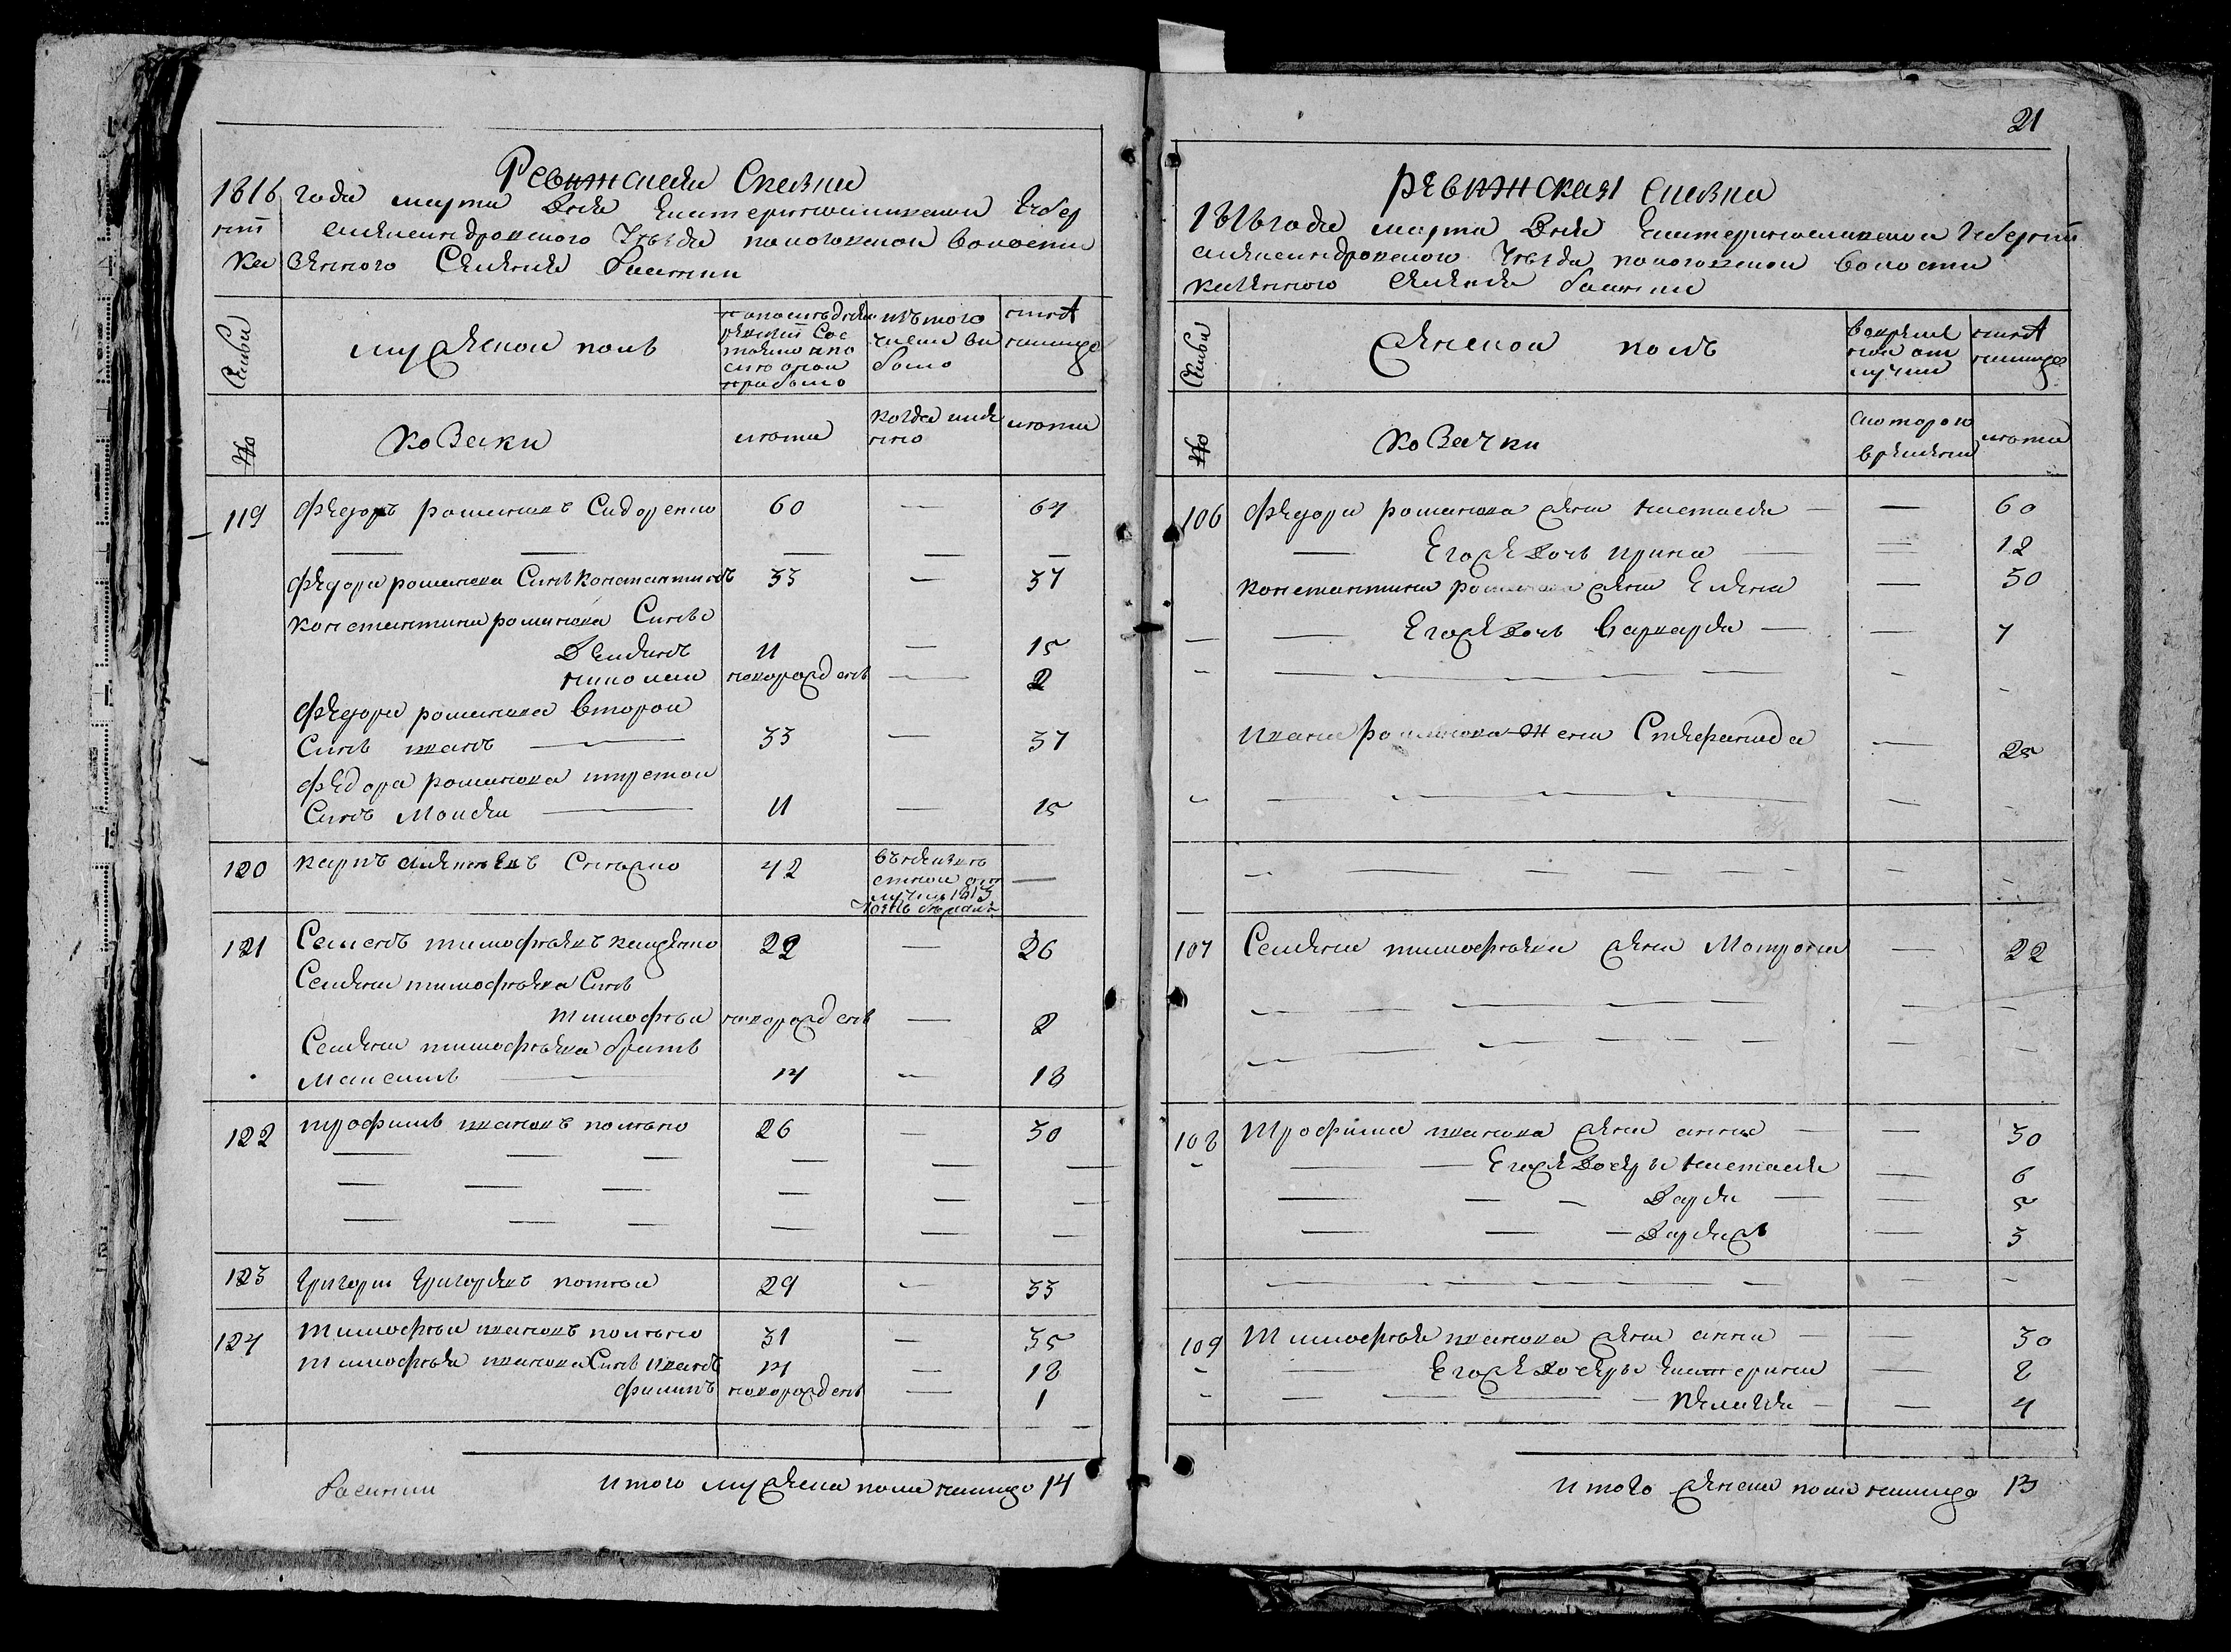 Ревижская Сказка
1816 года марта Дня Екатеринославской Губер
нии Александровского Уезда пологовской волости
Ка зенного Селения Басани
Семьи
мужеской полъ
по последней ревизии Состояло и после оной прибыло
изъ того числа выбыло
ныне налицо
№
Козаки
лета
когда именно
лета
119 Федоръ романовъ Сидоренко 60 — 64
Федора романова Синъ константинъ 33 — 37
константина романова Синъ
Демидъ 11 — 15
николай новорожденъ — 2
Федора романова второй
Синъ иванъ — 33 — 37
Федора романова третой
Синъ Моисей — 11 — 15
120 карпъ 42 —
121 Семенъ тимофеевъ 22 — 26
Семена тимофеева Синъ
тимофей новорожденъ — 2
Семена тимофеева братъ
Максимъ — 14 — 18
122 трофимъ ивановъ 26 — 30
123 Григори Григоревъ 29 — 33
124 Тимофей ивановъ 31 — 35
Тимофея иванова Синъ иванъ 14 — 18
филипъ новорожденъ — 1
Итого мужеска пола налицо 14
Басани
21
ревижская сказка
1816 года марта Дня Екатеринославской Губернии
александровского Уезда пологовской волости
казенного селения басани
Семьи
женской полъ
во временной отлучки
ныне налицо
№
Козачки
с которого времени
лета
106 Федора романова жена настасия — — 60
— Егожъ дочь ирина — — 12
константина романова жена Елена — 30
— Егожъ дочь варвара — — 7
ивана романова жена Степанида — 25
107 Семена тимофеева жена Мотрона — 22
108 Трофима иванова жена анна — — 30
— — Егожъ дочеры настасия — 6
— — Дарья — — 5
— — — 3
109 Тимофея иванова жена анна — — 30
— Егожъ дочеры Екатерина — 8
— — пелагея — — 4
итого женска пола налицо 13